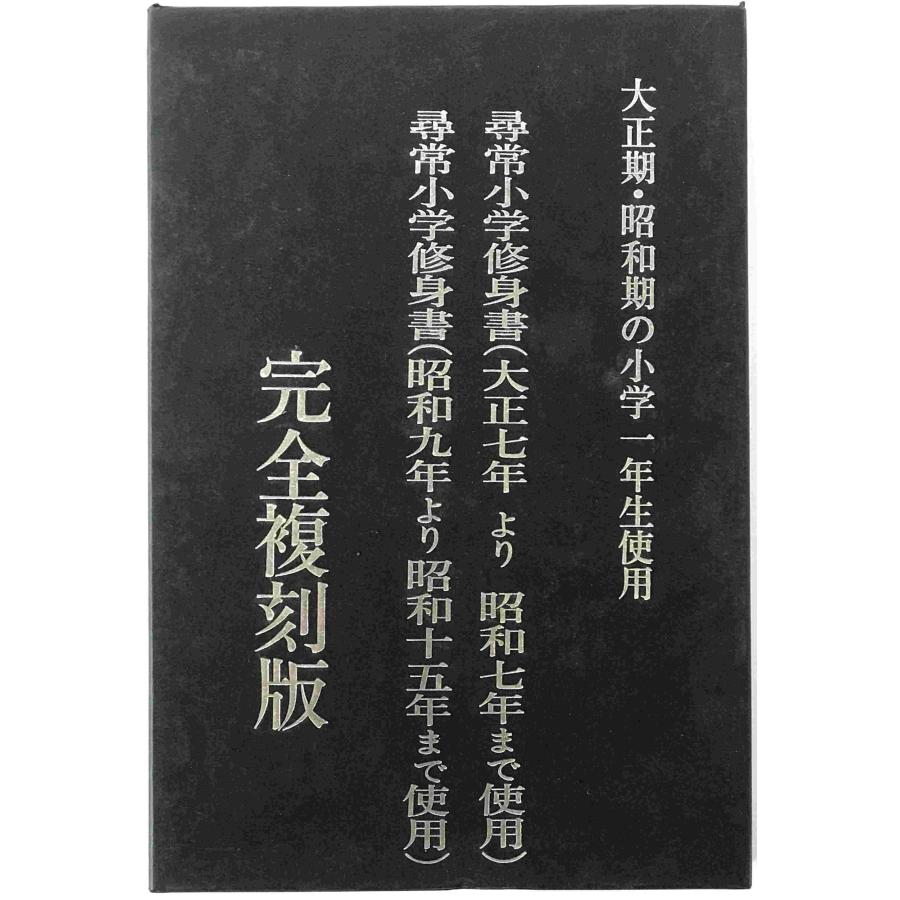 大正期・昭和期の小学一年生使用
尋常小学修身書（大正七年より昭和七年まで使用）
尋常小学修身書（昭和九年より昭和十五年まで使用）
完全複刻版